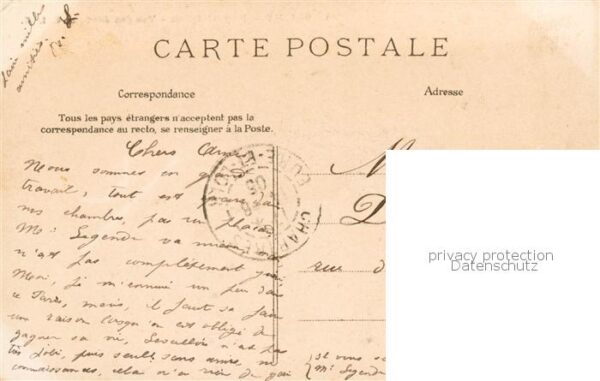 mille
amitiés
CARTE POSTALE
Correspondance
Adresse
Tous les pays étrangers n'acceptent pas la
correspondance au recto, se renseigner à la Poste.
Chers Amis
Nous sommes en grand
travail, tout est dans
nos chambres, pas un placard
Mr Legendre va mieux
n'est pas complètement
Moi, je m'ennuie un peu dans
ce Paris, mais, il faut se faire
une raison lorsqu'on est obligé de
gagner sa vie, n'est pas
très joli, puis seule sans amies, ni
connaissances, cela n'a rien de gai
M
D
rue d
si vous
Mr Legendre
privacy protection
Datenschutz